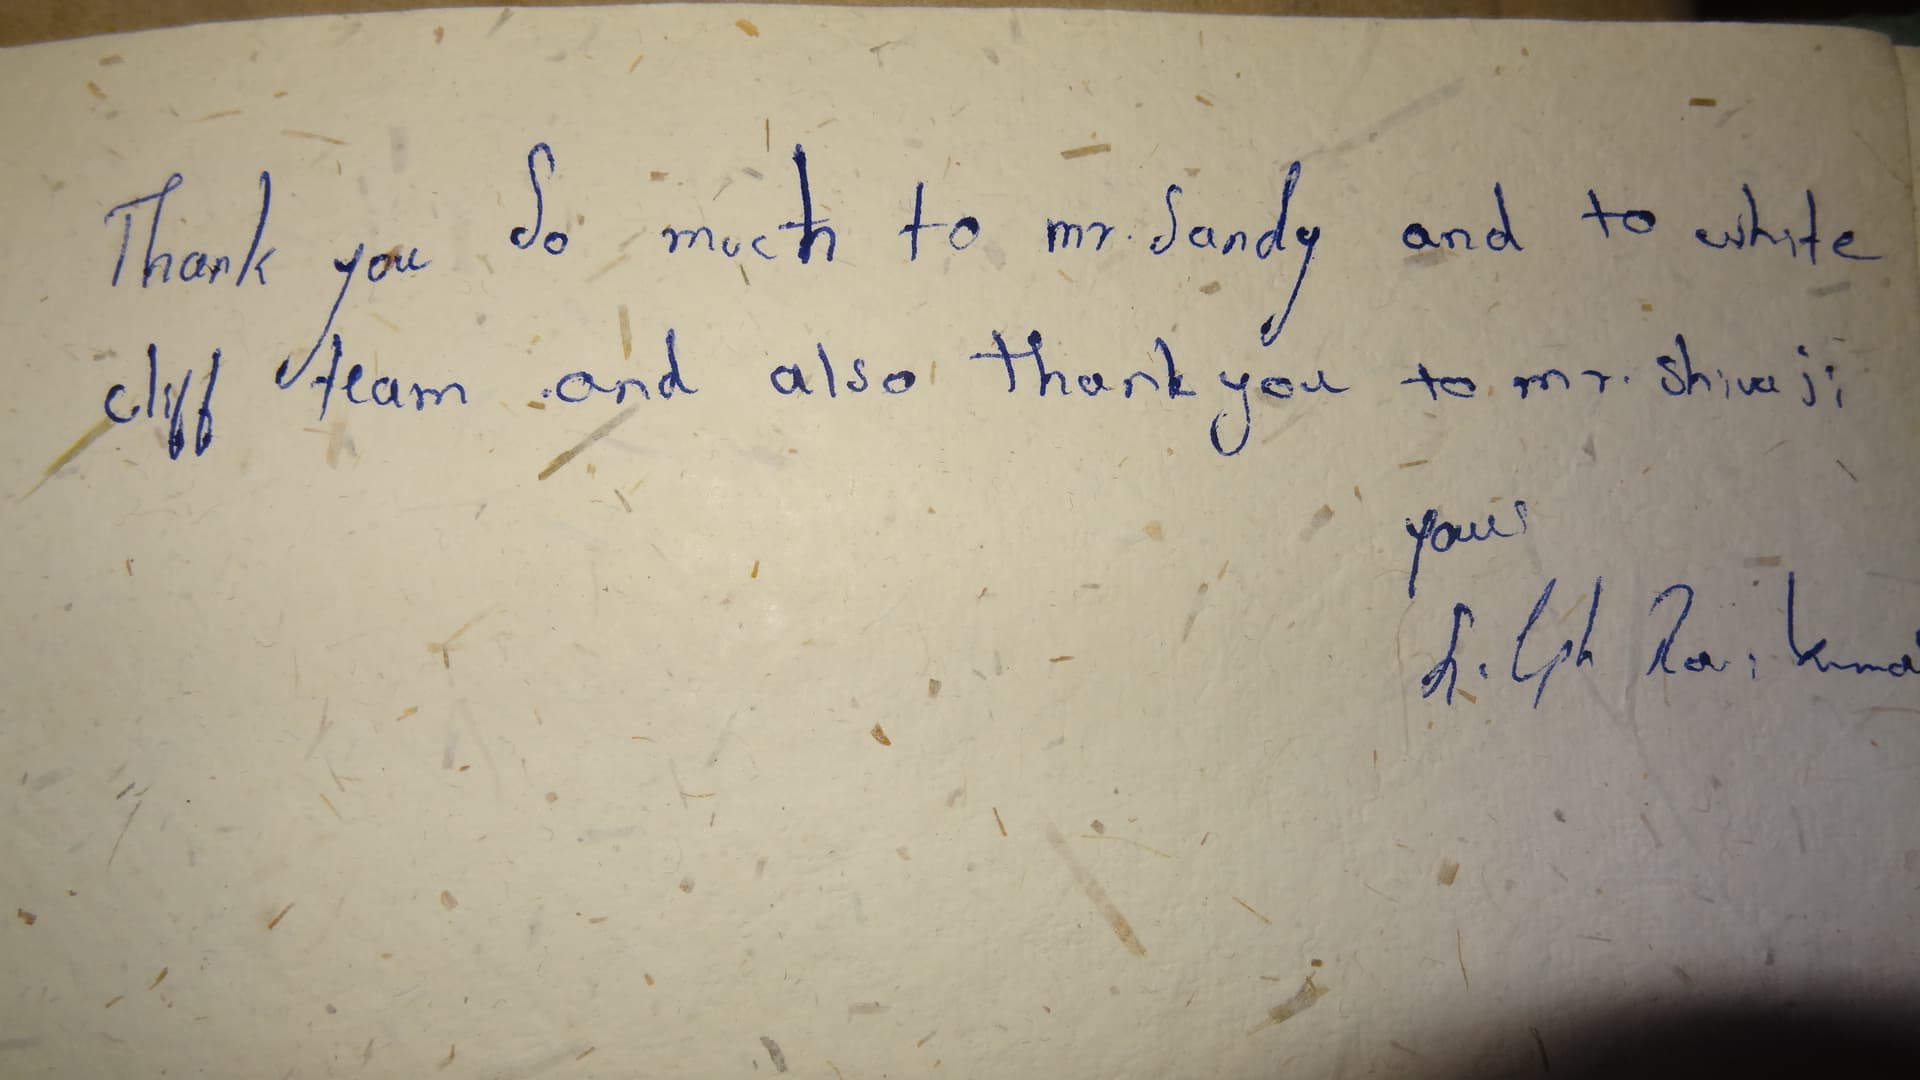 Thank you So much to mr. Sandy and to white
cliff team and also thank you to mr. shivaji
yours
Ravi Kumar